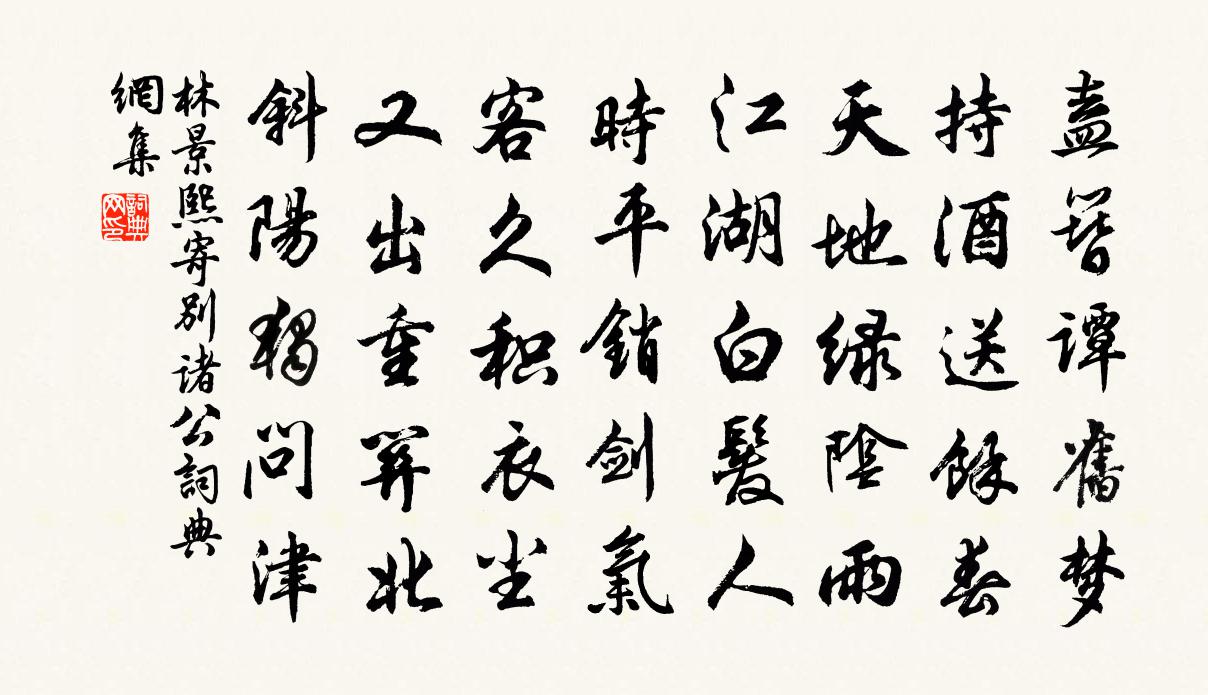 盍簪譚舊梦
持酒送餘春
天地绿陰雨
江湖白髮人
時平銷劍氣
客久积衣尘
又出重關北
斜陽獨問津
林景熙寄別诸公詞典
網集
詞典
网